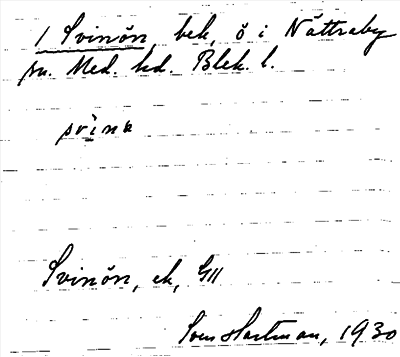 1 Svinön bek, ö i Nättraby
sn. Med. hd. Blek. l.
svina
Svinön, ek, GII
Sven Hartman, 1930